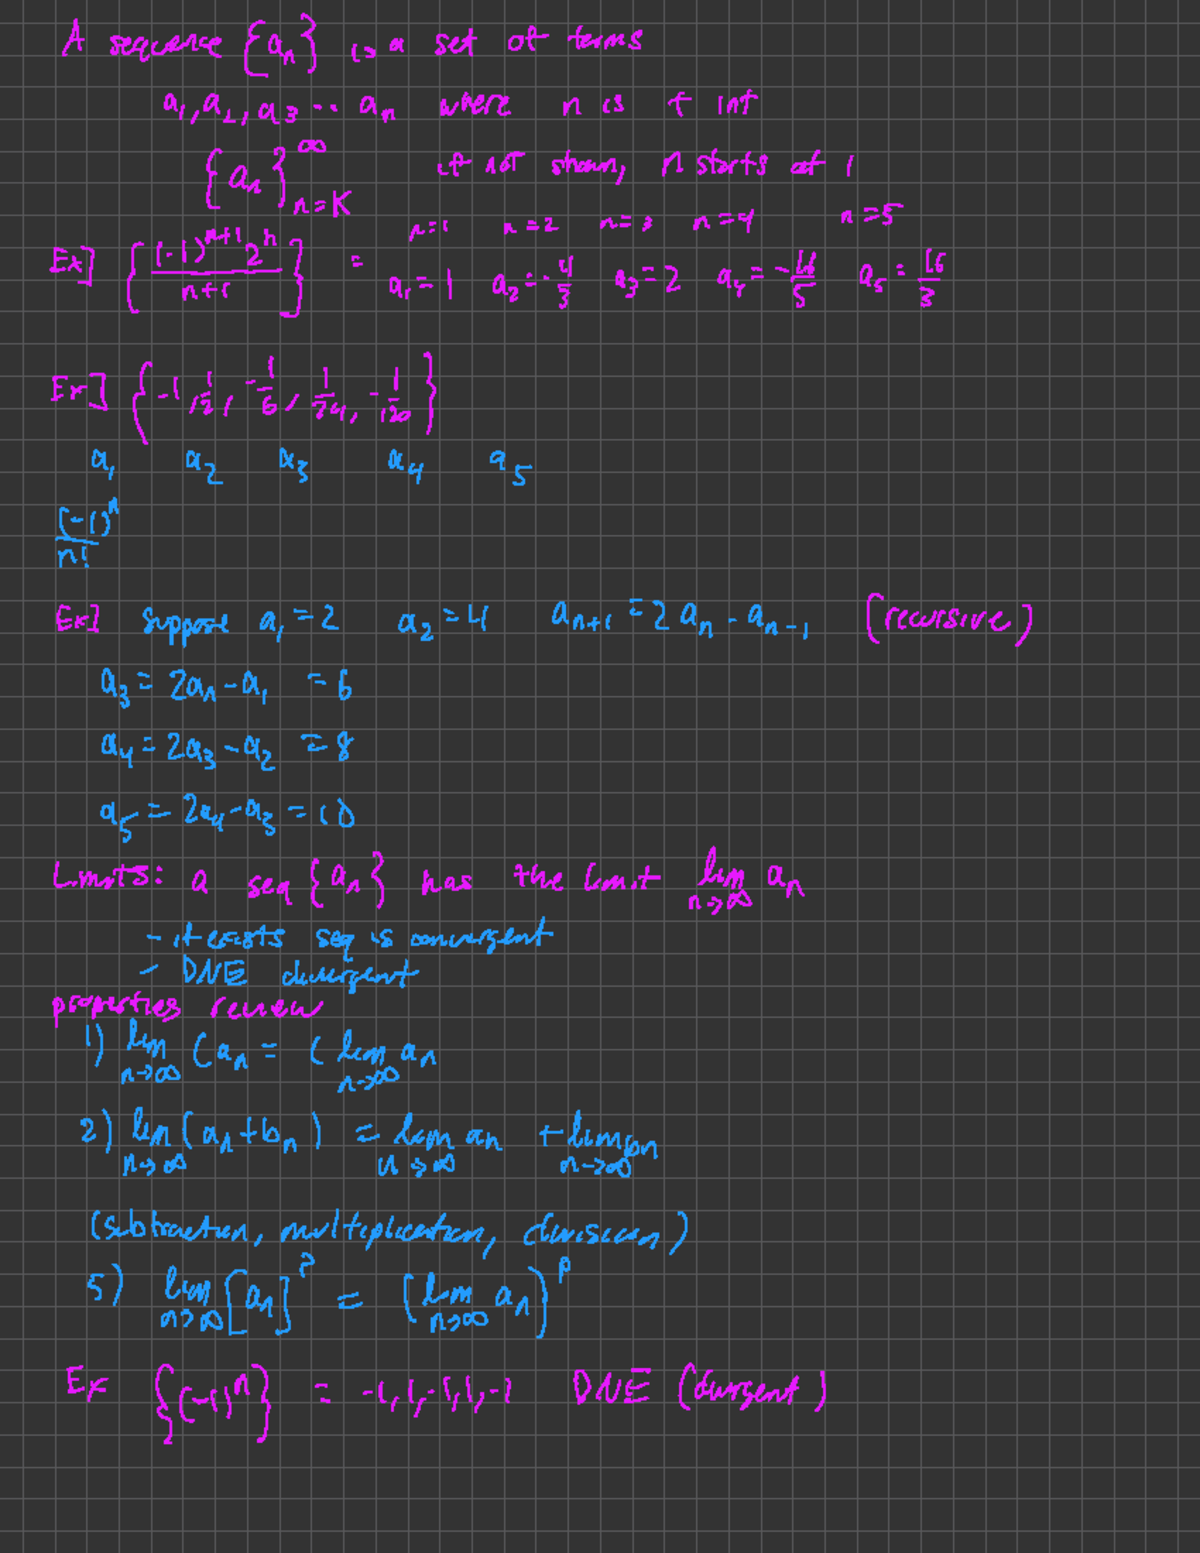 A sequence {aₙ} is a set of terms
a₁, a₂, a₃ ... aₙ where n is + int
{aₙ}^∞_{n=K} if not shown, n starts at 1
n=1 n=2 n=3 n=4 n=5
Ex] {(-1)^{n+1} 2^n / (n+1)} = a₁=1 a₂=-4/3 a₃=2 a₄=-16/5 a₅=16/3
Ex] {-1, 1/2, -1/6, 1/24, -1/120}
a₁ a₂ a₃ a₄ a₅
(-1)^n / n!
Ex] suppose a₁=2 a₂=4 a_{n+1}=2aₙ-a_{n-1} (recursive)
a₃=2aₙ-a₁ =6
a₄=2a₃-a₂ =8
a₅=2a₄-a₃=10
Limits: a seq {aₙ} has the limit lim_{n→∞} aₙ
- if exists seq is convergent
- DNE divergent
properties review
1) lim_{n→∞} C aₙ = C lim_{n→∞} aₙ
2) lim_{n→∞} (aₙ+bₙ) = lim_{n→∞} aₙ + lim_{n→∞} bₙ
(subtraction, multiplication, division)
5) lim_{n→∞} [aₙ]^p = (lim_{n→∞} aₙ)^p
Ex {(-1)^n} = -1, 1, -1, 1, -1 DNE (divrgent)